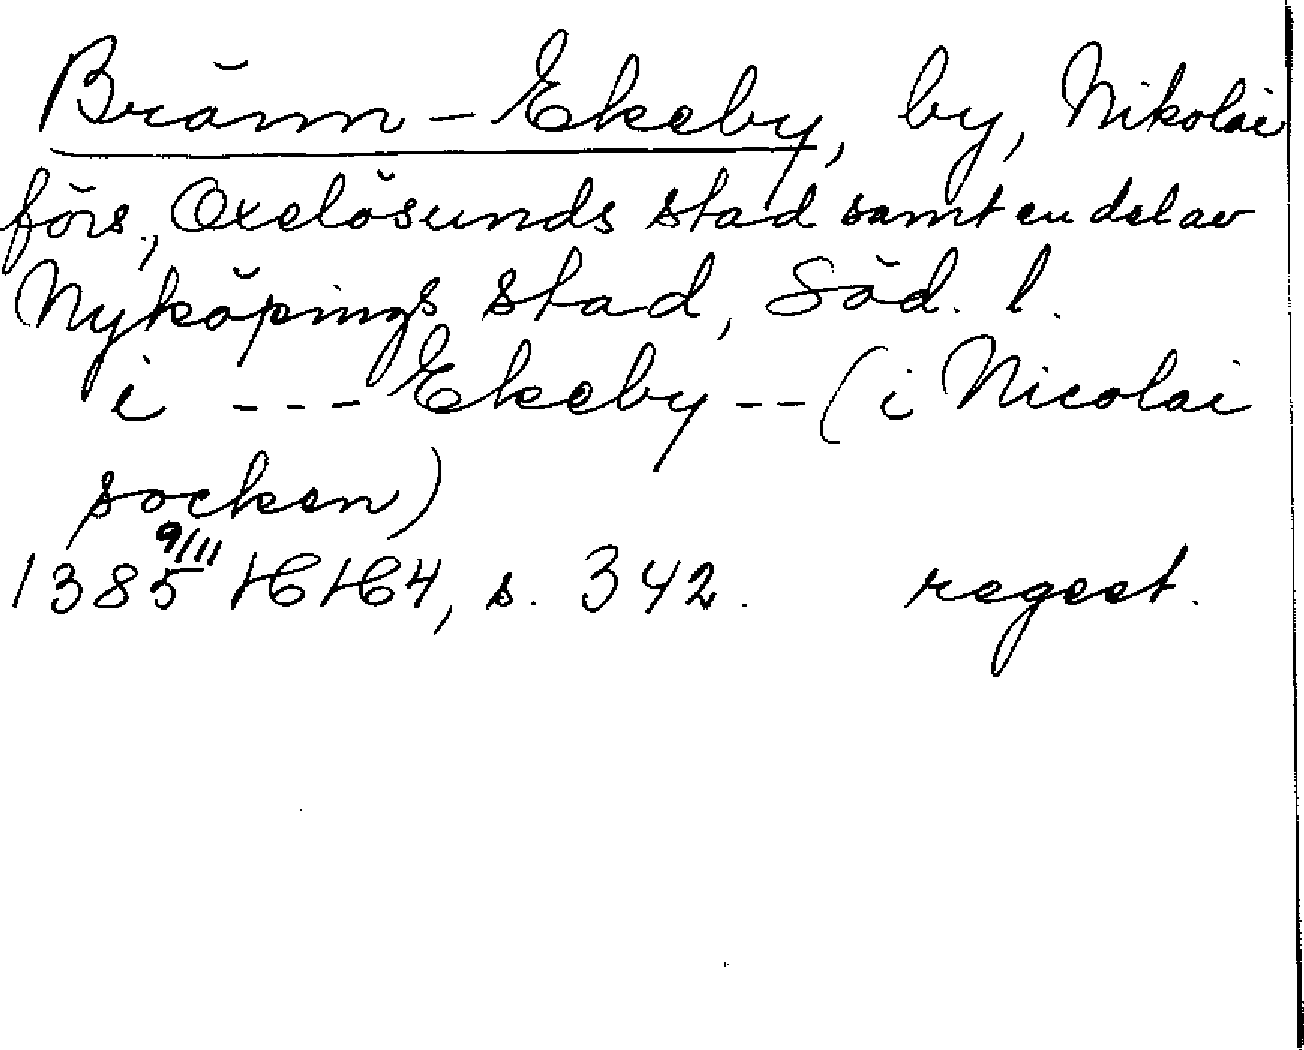 Bränn-Ekeby, by, Nikolai
förs., Oxelösunds stad samt en del av
Nyköpings stad, Söd. l.
i --- Ekeby -- (i Nicolai
socken)
1385 9/11 HH4, s. 342. regest.